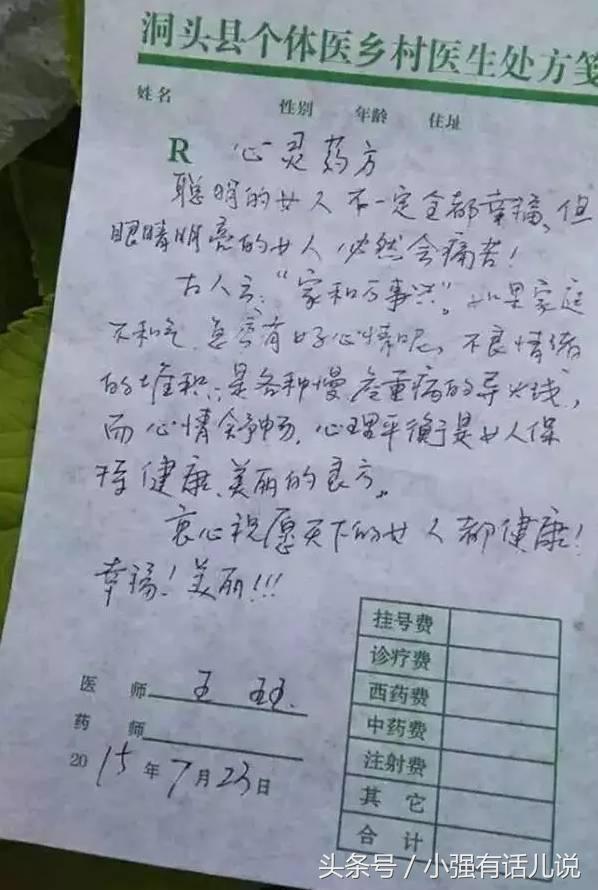 洞头县个体医乡村医生处方笺
姓名 性别 年龄 住址
R 心灵药方
聪明的女人不一定全都幸福、但
眼睛明亮的女人必然会痛苦!
古人云:"家和万事兴"。如果家庭
不和气、怎会有好心情呢、不良情绪
的堆积:是各种慢、危重病的导火线,
而心情舒畅、心理平衡是女人保
持健康、美丽的良方。
衷心祝愿天下的女人都健康!
幸福!美丽!!!
挂号费
诊疗费
西药费
中药费
注射费
其它
合计
医师 王
药师
2015年7月23日
头条号/小强有话儿说